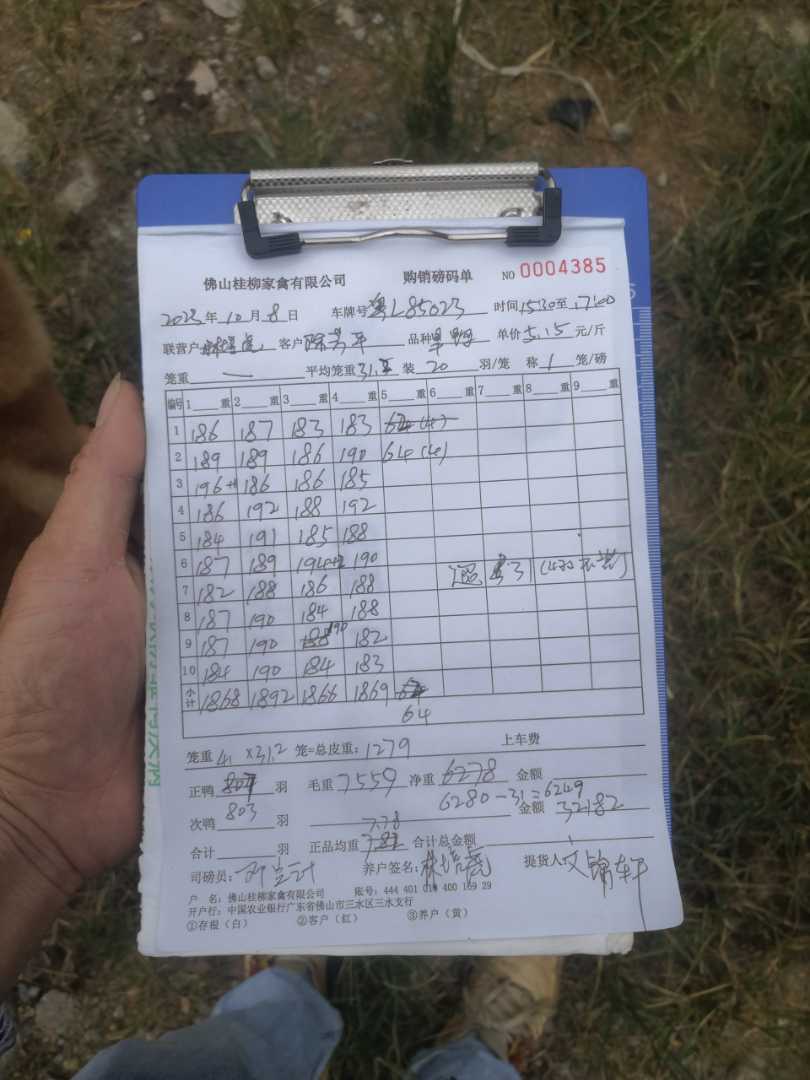 佛山桂柳家禽有限公司 购销磅码单 NO 0004385
2023年10月8日 车牌号粤L85023 时间1530至1700
联营户 客户 品种 单价5.15元/斤
笼重 一 平均笼重31.2 装20羽/笼 称1笼/磅
编号 1 重 2 重 3 重 4 重 5 重 6 重 7 重 8 重 9 重
1 186 187 183 183
2 189 189 186 190 64(4)
3 196 186 186 185
4 186 192 188 192
5 184 191 185 188
6 187 189 194 190
7 182 188 186 188
8 187 190 184 188
9 187 190 190 182
10 184 190 184 183
小计 1868 1892 1866 1869
64
笼重41×31.2笼=总皮重:1279 上车费
正鸭 羽 毛重7559 净重6278 金额
803 6280-31=6249
次鸭 羽 金额 32182
7.78
合计 羽 正品均重 合计总金额
司磅员: 养户签名:林培虎 提货人
户 名:佛山桂柳家禽有限公司 账号:444 401 010 400 169 29
开户行:中国农业银行广东省佛山市三水区三水支行
①存根(白) ②客户(红) ③养户(黄)